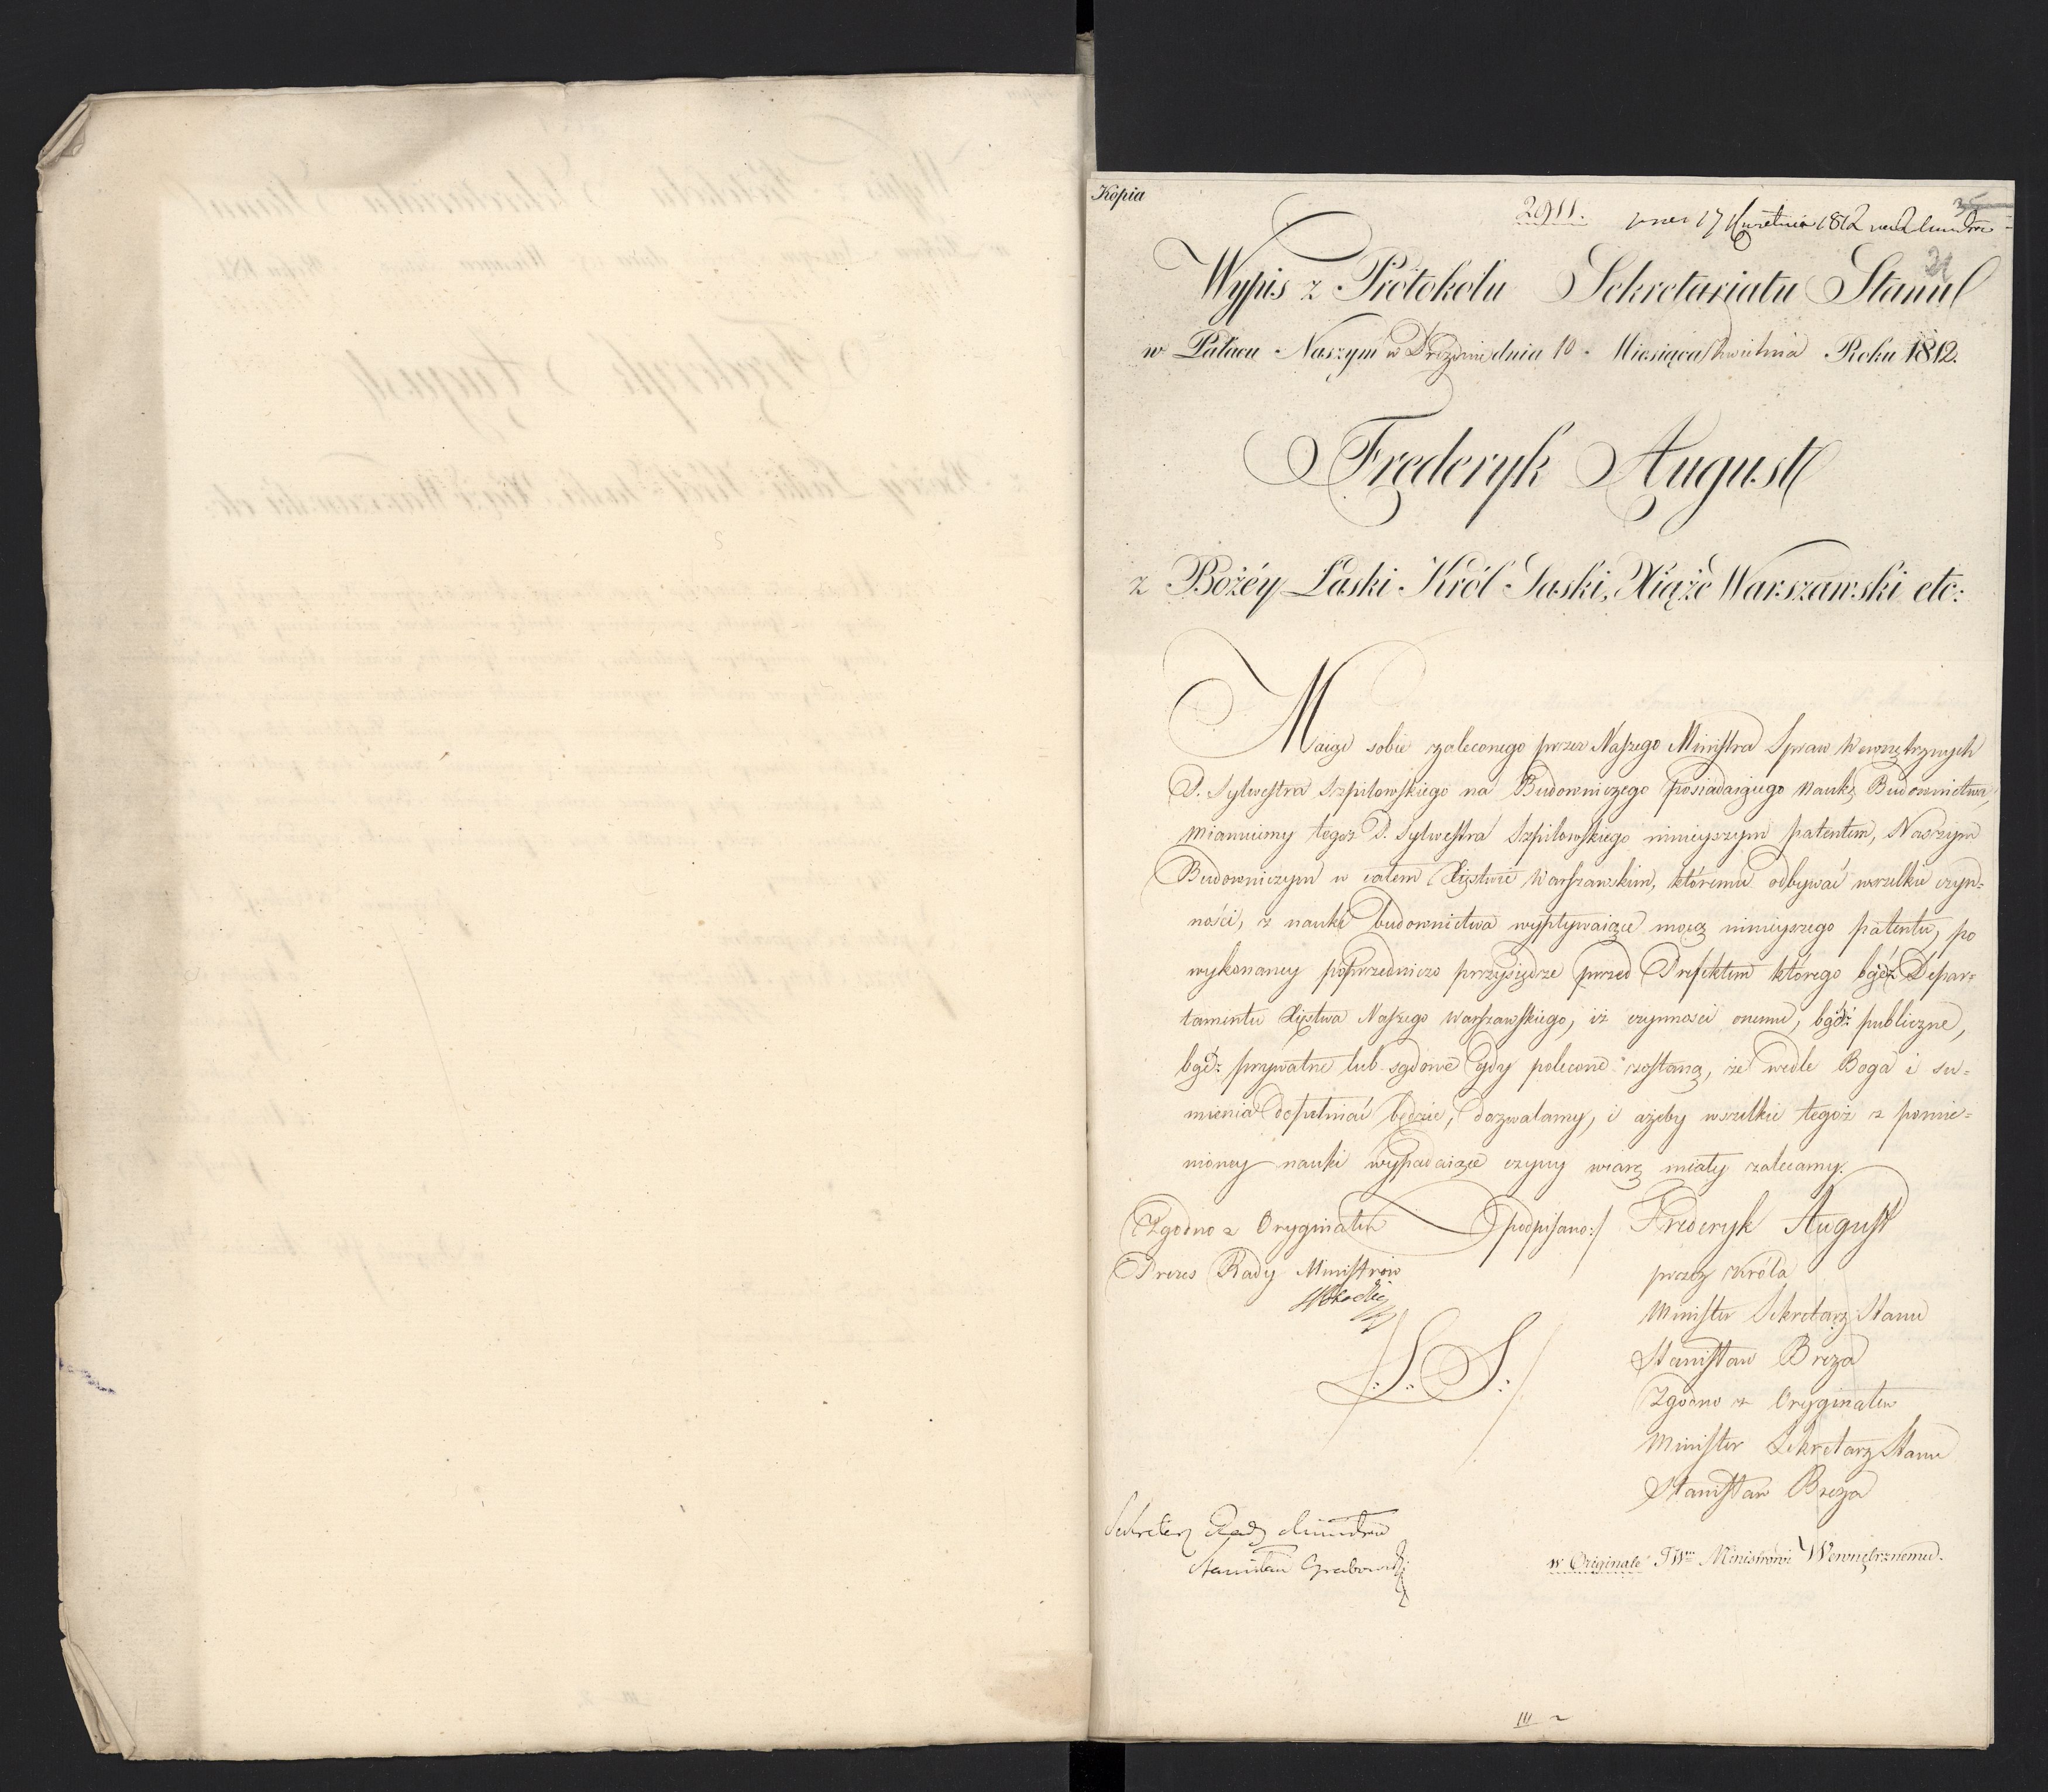 Kopia
2911. 17 Kwietnia 1812
35
21
Wypis z Protokołu Sekretariatu Stanu
w Pałacu Naszym w Dreznie dnia 10 Miesiąca Kwietnia Roku 1812.
Frederyk August
z Bożéy Łaski Król Saski, Xiąże Warszawski etc:
Maiąc sobie zaleconego przez Naszego Ministra Spraw Wewnętrznych
P. Sylwestra Szpilowskiego na Budowniczego posiadaiącego naukę Budownictwa,
mianuiemy tegoż P. Sylwestra Szpilowskiego ninieyszym patentem, Naszym
Budowniczym w całem Xięstwie Warszawskim, któremu odbywać wszelkie czyn=
ności, z nauki budownictwa wypływaiące mocą ninieyszego patentu, po
wykonaney poprzedniczo przysiędze przed Prefektem którego bądź Depar=
tamentu Xięstwa Naszego Warszawskiego, iż czynności onemu, bądź publiczne,
bądź prywatne lub sądowe gdy polecone zostaną, że wedle Boga i su=
mienia dopełniać będzie, dozwalamy, i ażeby wszelkie tegoż z pomie=
nioney nauki wypadaiące czyny wiarę miały zalecamy.
Zgodno z Oryginałem podpisano:/ Frederyk August
Prezes Rady Ministrów przez Króla
Minister Sekretarz Stanu
/:L:S:/ Stanisław Breza
Zgodno z Oryginałem
Minister Sekretarz Stanu
Stanisław Breza
Sekretarz Rady Ministrów
Stanisław Grabowski
w Originale JWmu Ministrowi Wewnętrznemu.
III